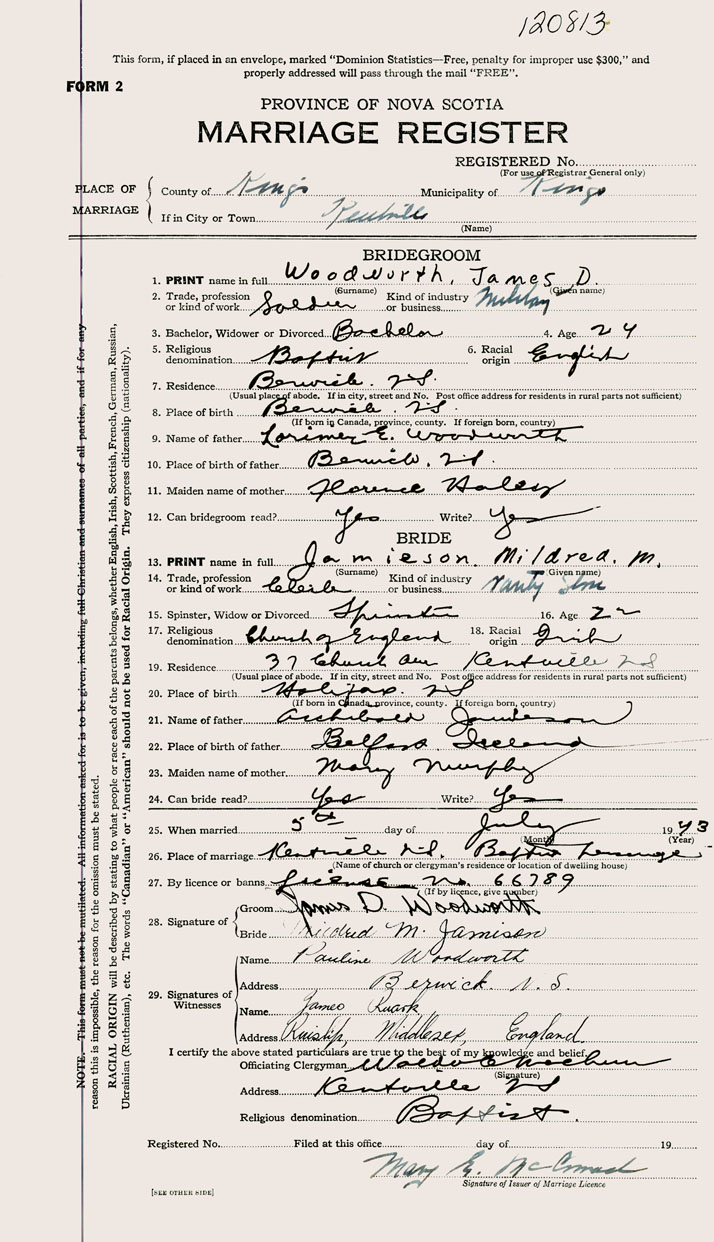 120813
This form, if placed in an envelope, marked "Dominion Statistics—Free, penalty for improper use $300," and
properly addressed will pass through the mail "FREE".
FORM 2
PROVINCE OF NOVA SCOTIA
MARRIAGE REGISTER
REGISTERED No.
(For use of Registrar General only)
PLACE OF MARRIAGE
County of Kings Municipality of Kings
If in City or Town Kentville
(Name)
BRIDEGROOM
1. PRINT name in full Woodworth, James D.
(Surname) (Given name)
2. Trade, profession or kind of work Soldier Kind of industry or business Military
3. Bachelor, Widower or Divorced Bachelor 4. Age 24
5. Religious denomination Baptist 6. Racial origin English
7. Residence Berwick. N.S.
(Usual place of abode. If in city, street and No. Post office address for residents in rural parts not sufficient)
8. Place of birth Berwick. N.S.
(If born in Canada, province, county. If foreign born, country)
9. Name of father Lorimer E. Woodworth
10. Place of birth of father Berwick. N.S.
11. Maiden name of mother Florence Haley
12. Can bridegroom read? Yes Write? Yes
BRIDE
13. PRINT name in full Jamieson. Mildred. M.
(Surname) (Given name)
14. Trade, profession or kind of work Clerk Kind of industry or business
15. Spinster, Widow or Divorced Spinster 16. Age 22
17. Religious denomination Church of England 18. Racial origin Irish
19. Residence 37 Church Ave Kentville NS
(Usual place of abode. If in city, street and No. Post office address for residents in rural parts not sufficient)
20. Place of birth Halifax. NS
(If born in Canada, province, county. If foreign born, country)
21. Name of father Archibald Jamieson
22. Place of birth of father Belfast Ireland
23. Maiden name of mother Mary Murphy
24. Can bride read? Yes Write? Yes
25. When married 5th day of July 1943
(Month) (Year)
26. Place of marriage Kentville N.S. Baptist Parsonage
(Name of church or clergyman's residence or location of dwelling house)
27. By licence or banns License No. 66789
(If by licence, give number)
28. Signature of Groom James D. Woodworth
Bride Mildred M. Jamison
29. Signatures of Witnesses
Name Pauline Woodworth
Address Berwick. N.S.
Name James
Address Ruislip, Middlesex, England.
I certify the above stated particulars are true to the best of my knowledge and belief.
Officiating Clergyman Waldo E
(Signature)
Address Kentville NS
Religious denomination Baptist.
Registered No. Filed at this office day of 19
Mary E.
Signature of Issuer of Marriage Licence
[SEE OTHER SIDE]
NOTE. This form must not be mutilated. All information asked for is to be given, including full Christian and surnames of all parties, and if for any
reason this is impossible, the reason for the omission must be stated.
RACIAL ORIGIN will be described by stating to what people or race each of the parents belongs, whether English, Irish, Scottish, French, German, Russian,
Ukrainian (Ruthenian), etc. The words "Canadian" or "American" should not be used for Racial Origin. They express citizenship (nationality).